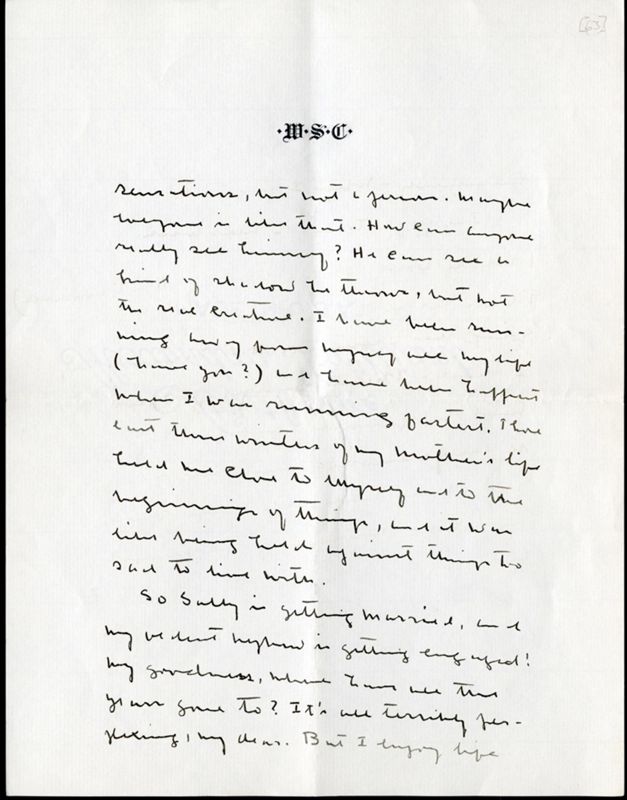 [63]
·W·S·C·
sensations, but not a person. Maybe
everyone is like that. How can anyone
really see himself? He can see a
kind of shadow he throws, but not
the real creature. I have been run-
ning away from myself all my life
(have you?) and have been happiest
when I was running fastest. Those
last three winters of my Mother's life
held me close to myself and to the
beginnings of things, and it was
like being held against things too
sad to live with.
So Sally is getting married, and
my oldest nephew is getting engaged!
My goodness, where have all the
years gone to? It's all terribly per-
plexing, my dear. But I enjoy life